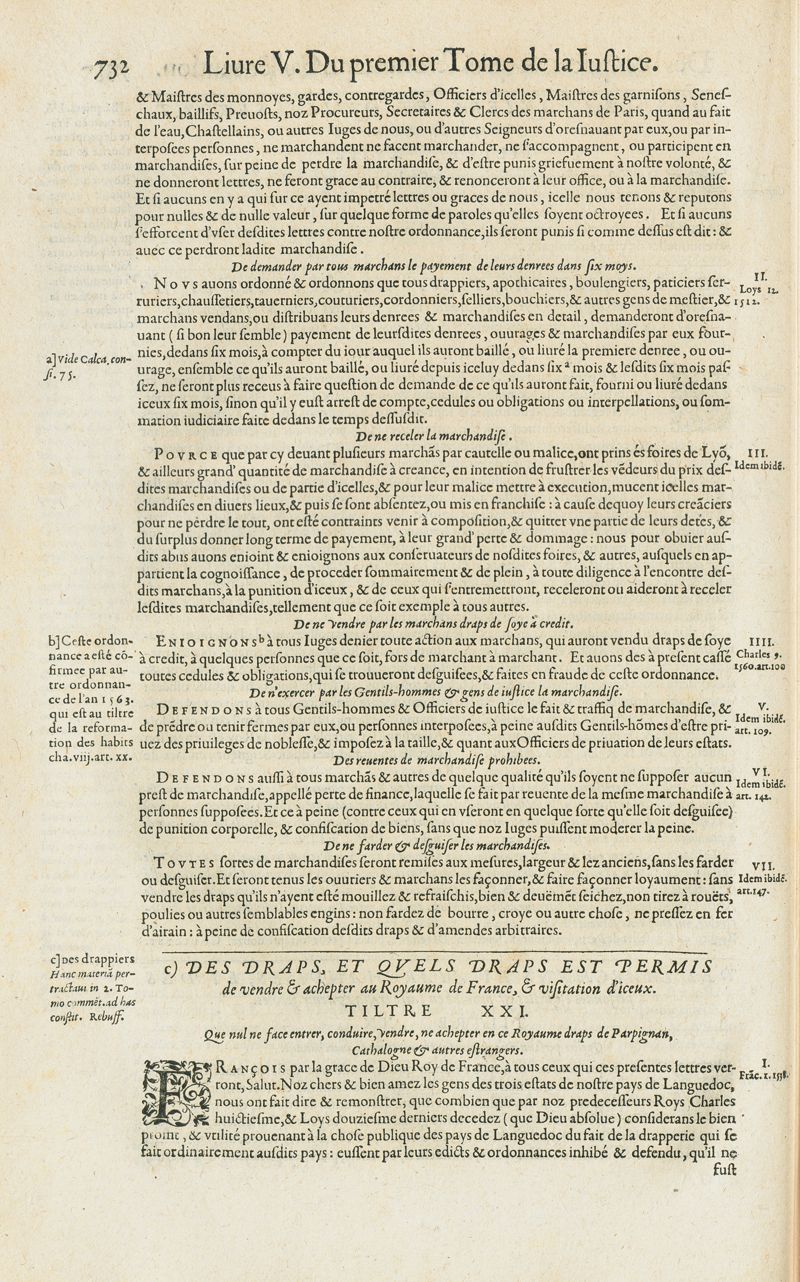 732 Liure V. Du premier Tome de la Iuſtice.
& Maiſtres des monnoyes, gardes, contregardes, Officiers d'icelles, Maiſtres des garniſons, Seneſ-
chaux, baillifs, Preuoſts, noz Procureurs, Secretaires & Clercs des marchans de Paris, quand au fait
de l'eau, Chaſtellains, ou autres Iuges de nous, ou d'autres Seigneurs d'oreſnauant par eux, ou par in-
terpoſees perſonnes, ne marchandent ne facent marchander, ne ſ'accompagnent, ou participent en
marchandiſes, ſur peine de perdre la marchandiſe, & d'eſtre punis griefuement à noſtre volonté, &
ne donneront lettres, ne feront grace au contraire, & renonceront à leur office, ou à la marchandiſe.
Et ſi aucuns en y a qui ſur ce ayent impetré lettres ou graces de nous, icelle nous tenons & reputons
pour nulles & de nulle valeur, ſur quelque forme de paroles qu'elles ſoyent octroyees. Et ſi aucuns
ſ'efforcent d'vſer deſdites lettres contre noſtre ordonnance, ils ſeront punis ſi comme deſſus eſt dit: &
auec ce perdront ladite marchandiſe.
De demander par tous marchans le payement de leurs denrees dans ſix moys.
Novs auons ordonné & ordonnons que tous drappiers, apothicaires, boulengiers, paticiers ſer-
II.
Loys 12.
ruriers, chauſſetiers, tauerniers, couturiers, cordonniers, ſelliers, bouchiers, & autres gens de meſtier, &
1512.
marchans vendans, ou diſtribuans leurs denrees & marchandiſes en detail, demanderont d'oreſna-
uant (ſi bon leur ſemble) payement de leurſdites denrees, ouurages & marchandiſes par eux four-
nies, dedans ſix mois, à compter du iour auquel ils auront baillé, ou liuré la premiere denree, ou ou-
a] Vide Calca. con-
ſi. 75.
urage, enſemble ce qu'ils auront baillé, ou liuré depuis iceluy dedans ſix a mois & leſdits ſix mois paſ-
ſez, ne ſeront plus receus à faire queſtion de demande de ce qu'ils auront fait, fourni ou liuré dedans
iceux ſix mois, ſinon qu'il y euſt arreſt de compte, cedules ou obligations ou interpellations, ou ſom-
mation iudiciaire faite dedans le temps deſſuſdit.
De ne receler la marchandiſe.
Povrce que par cy deuant pluſieurs marchãs par cautelle ou malice, ont prins és foires de Lyõ,
III.
& ailleurs grand' quantité de marchandiſe à creance, en intention de fruſtrer les vẽdeurs du prix deſ-
Idem ibidẽ.
dites marchandiſes ou de partie d'icelles, & pour leur malice mettre à execution, mucent icelles mar-
chandiſes en diuers lieux, & puis ſe ſont abſentez, ou mis en franchiſe: à cauſe dequoy leurs creãciers
pour ne perdre le tout, ont eſté contraints venir à compoſition, & quitter vne partie de leurs detes, &
du ſurplus donner long terme de payement, à leur grand' perte & dommage: nous pour obuier auſ-
dits abus auons enioint & enioignons aux conſeruateurs de noſdites foires, & autres, auſquels en ap-
partient la cognoiſſance, de proceder ſommairement & de plein, à toute diligence à l'encontre deſ-
dits marchans, à la punition d'iceux, & de ceux qui ſ'entremettront, receleront ou aideront à receler
leſdites marchandiſes, tellement que ce ſoit exemple à tous autres.
De ne vendre par les marchans draps de ſoye à credit.
b] Ceſte ordon-
nance a eſté cõ-
firmee par au-
tre ordonnan-
ce de l'an 1563.
qui eſt au tiltre
de la reforma-
tion des habits
cha. viij. art. xx.
Enioignons b à tous Iuges denier toute action aux marchans, qui auront vendu draps de ſoye
IIII.
à credit, à quelques perſonnes que ce ſoit, fors de marchant à marchant. Et auons des à preſent caſſé
Charles 9.
1560. art. 100
toutes cedules & obligations, qui ſe trouueront deſguiſees, & faites en fraude de ceſte ordonnance.
De n'exercer par les Gentils-hommes & gens de iuſtice la marchandiſe.
Defendons à tous Gentils-hommes & Officiers de iuſtice le fait & traffiq de marchandiſe, &
V.
Idem ibidẽ.
art. 109.
de prẽdre ou tenir fermes par eux, ou perſonnes interpoſees, à peine auſdits Gentils-hõmes d'eſtre pri-
uez des priuileges de nobleſſe, & impoſez à la taille, & quant aux Officiers de priuation de leurs eſtats.
Des reuentes de marchandiſe prohibees.
Defendons auſſi à tous marchãs & autres de quelque qualité qu'ils ſoyent ne ſuppoſer aucun
VI.
Idem ibidẽ.
art. 142.
preſt de marchandiſe, appellé perte de finance, laquelle ſe fait par reuente de la meſme marchandiſe à
perſonnes ſuppoſees. Et ce à peine (contre ceux qui en vſeront en quelque ſorte qu'elle ſoit deſguiſee)
de punition corporelle, & confiſcation de biens, ſans que noz Iuges puiſſent moderer la peine.
De ne farder & deſguiſer les marchandiſes.
Tovtes ſortes de marchandiſes ſeront remiſes aux meſures, largeur & lez anciens, ſans les farder
VII.
ou deſguiſer. Et ſeront tenus les ouuriers & marchans les façonner, & faire façonner loyaument: ſans
Idem ibidẽ.
art. 147.
vendre les draps qu'ils n'ayent eſté mouillez & refraiſchis, bien & deuëmẽt ſeichez, non tirez à rouëts,
poulies ou autres ſemblables engins: non fardez de bourre, croye ou autre choſe, ne preſſez en fer
d'airain: à peine de confiſcation deſdits draps & d'amendes arbitraires.
c] Des drappiers
Hanc materiã per-
tractaui in 2. To-
mo commẽt. ad has
conſtit. Rebuff.
c) DES DRAPS, ET QVELS DRAPS EST PERMIS
de vendre & achepter au Royaume de France, & viſitation d'iceux.
TILTRE XXI.
Que nul ne face entrer, conduire, vendre, ne achepter en ce Royaume draps de Parpignan,
Cathalogne & autres eſtrangers.
François par la grace de Dieu Roy de France, à tous ceux qui ces preſentes lettres ver-
I.
Frãc. 1. 1538.
ront, Salut. Noz chers & bien amez les gens des trois eſtats de noſtre pays de Languedoc,
nous ont fait dire & remonſtrer, que combien que par noz predeceſſeurs Roys Charles
huictieſme, & Loys douzieſme derniers decedez (que Dieu abſolue) conſiderans le bien
proffit, & vtilité prouenant à la choſe publique des pays de Languedoc du fait de la drapperie qui ſe
fait ordinairement auſdits pays: euſſent par leurs edicts & ordonnances inhibé & defendu, qu'il ne
fuſt